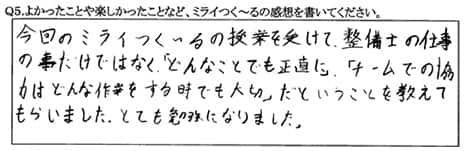 Q5.よかったことや楽しかったことなど、ミライつく～るの感想を書いてください。
今回のミライつく～るの授業を受けて、整備士の仕事
の事だけではなく「どんなことでも正直に」「チームでの協
力はどんな作業をする時でも大切」だということを教えて
もらいました。とても勉強になりました。